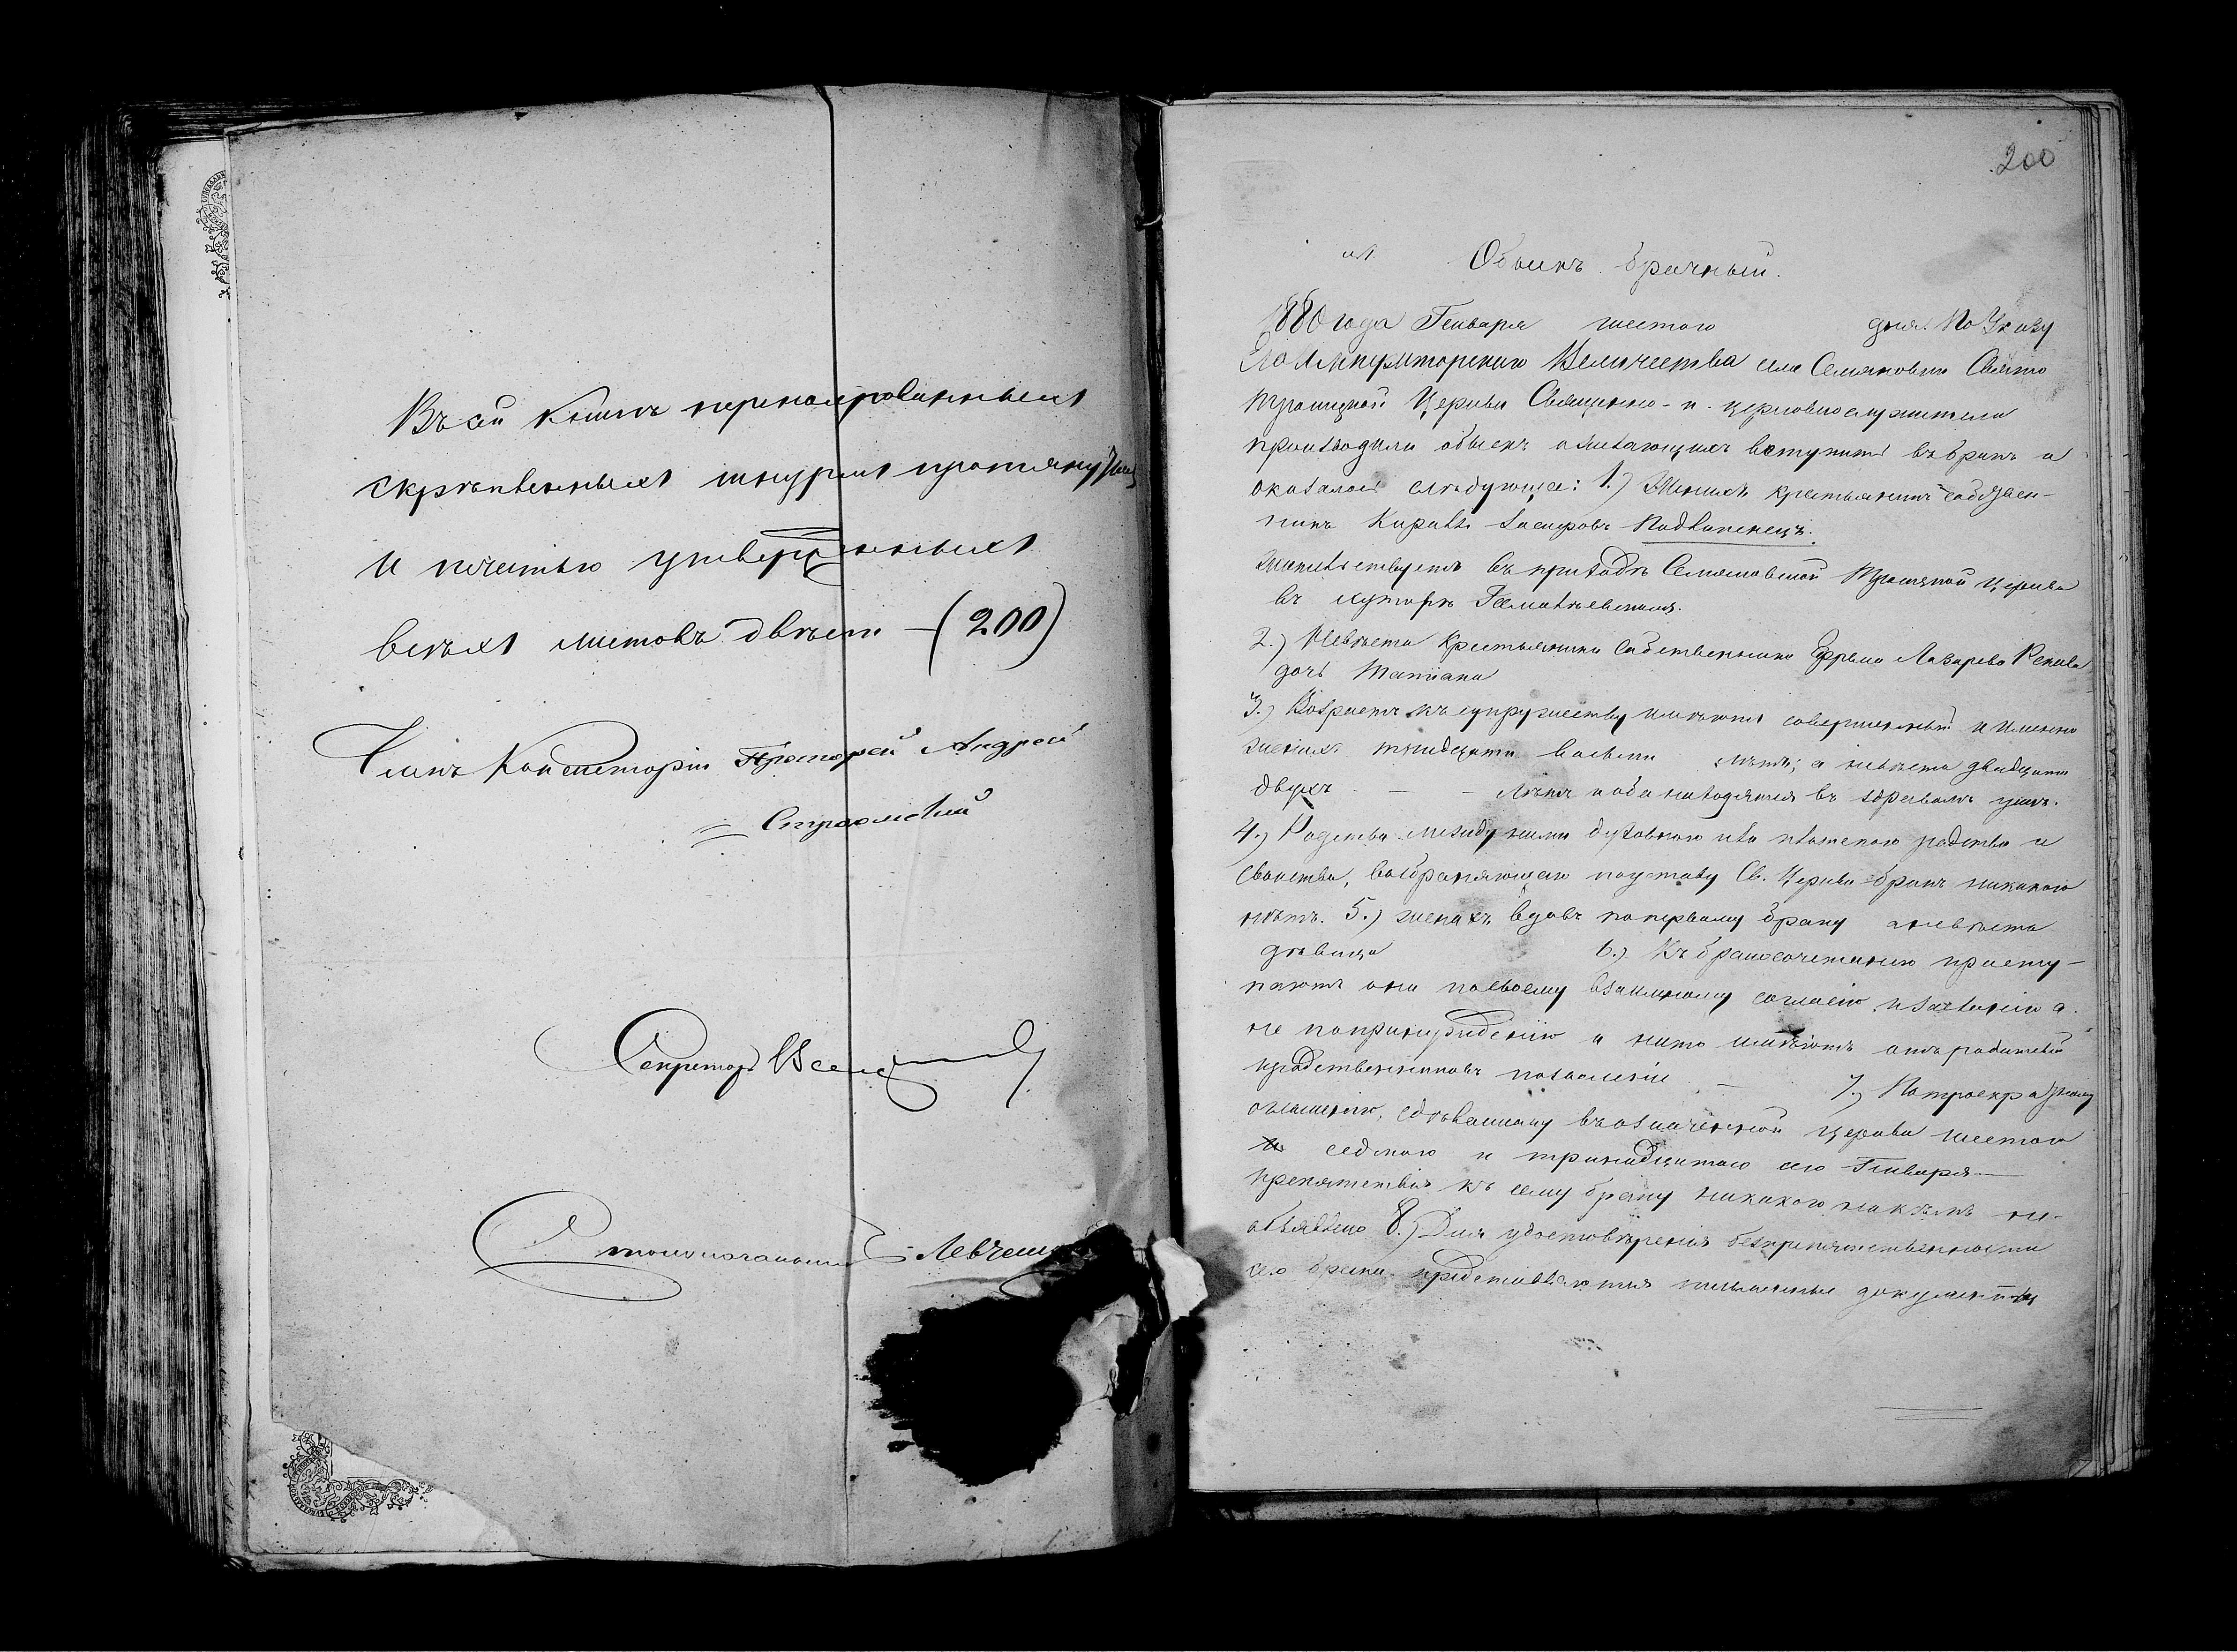 Въ сей книгѣ перенумерованныхъ
скрѣпленныхъ шнуромъ протянутыхъ
и печатью утвержденныхъ
всѣхъ листовъ двѣсти — (200)
Членъ Консисторіи Протоіерей Андрей
Секретарь
Столоначальникъ Левченко
200
№1 Обыскъ брачный.
1880 года Генваря шестого дня. По Указу
Его Императорского Величества села Семяновки Свято
Троицкой Церкви Священно- и церковнослужители
производили обыскъ о желающихъ вступить въ бракъ и
оказалось слѣдующее: 1.) Женихъ крестьянинъ собствен-
никъ Кирилъ Іосифовъ
жительствуетъ въ приходѣ Семяновской Троицкой церкви
въ хуторѣ
2.) Невѣста крестьянина собственника Ефрема Лазарева Рекала
дочь Татіана
3.) Возрастъ къ супружеству имѣютъ совершенный и именно
женихъ тридцати восьми лѣтъ; а невѣста двадцати
двухъ — — лѣтъ и оба находятся въ здравомъ умѣ.
4.) Родства между ними духовного или плотского родства и
свойства, возбраняющаго по уставу Св. Церкви бракъ никакого
нѣтъ. 5.) женихъ вдовъ по первому браку а невѣста
дѣвица 6.) Къ бракосочетанію присту-
паютъ они по своему взаимному согласію и желанію а
не по принужденію и на то имѣютъ отъ родителей
и родственниковъ позволеніе — 7.) По троекратному
оглашенію, сдѣланному въ означенной церкви шестого
седмого и тринадцатого сего Генваря —
препятствія къ сему браку никакого никѣмъ не
объявлено 8.) Для удостовѣренія безпрепятственности
сего брака представляются письменные документы